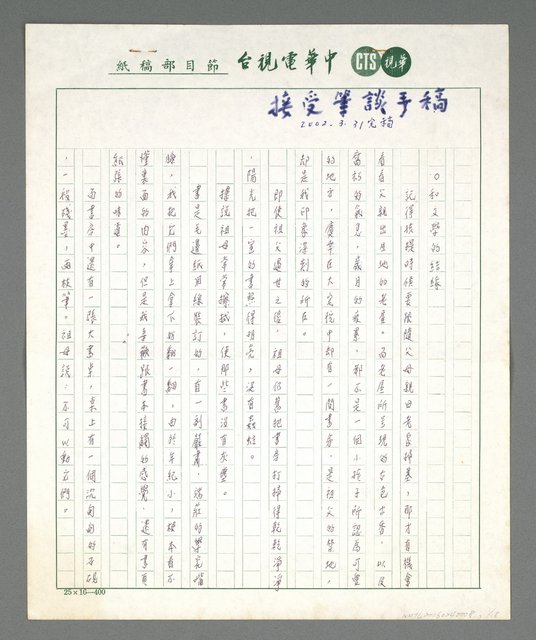 中華電視台節目部稿紙
CTS 華視
接受筆談手稿
2002.3.31完稿
○和文學的結緣
記得孩提時候要陪隨父母親回老家掃墓，那才有機會
看看父親出生地的老屋。而老屋所呈現的古色古香，以及
當初的氣息，歲月的痕素，都不是一個小孩子所認為可愛
的地方，廣東巨大宅院中卻有一間書房，是祖父的禁地，
卻是我印象深刻的所在。
即使祖父過世之後，祖母仍舊把書房打掃得乾乾淨淨
，陽光把一室的書照得明亮，沒有蟲蛀。
據說祖母常常擦拭，使那些書沒有灰塵。
書是毛邊紙用線裝訂的，有一副嚴肅、端莊的學究嘴
臉，我把它們拿上拿下的翻一翻，由於年紀小，根本看不
懂裏面的內容，但是我喜歡跟書本接觸的感覺，還有書頁
紙張的味道。
而書房中還有一張大書桌，桌上有一個沉甸甸的石硯
，一根殘墨，兩枝筆，祖母說：不可以動它們。
25×16＝400